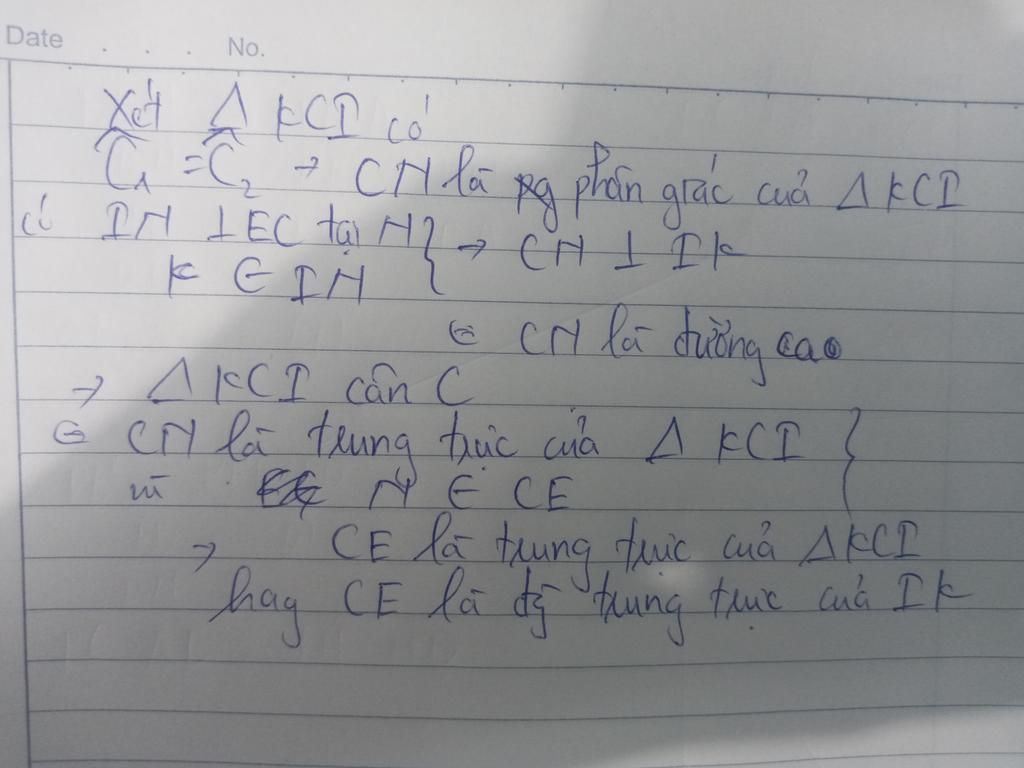 Date . . . No.
Xét Δ KCI có
Ĉ₁ = Ĉ₂ → CN là pg phân giác của Δ KCI
có IN ⊥ EC tại N } → CN ⊥ IK
K ∈ IN
CN là đường cao
→ Δ KCI cân C
CN là trung trực của Δ KCI }
vì N ∈ CE
→ CE là trung trực của ΔKCI
hay CE là đg trung trực của IK